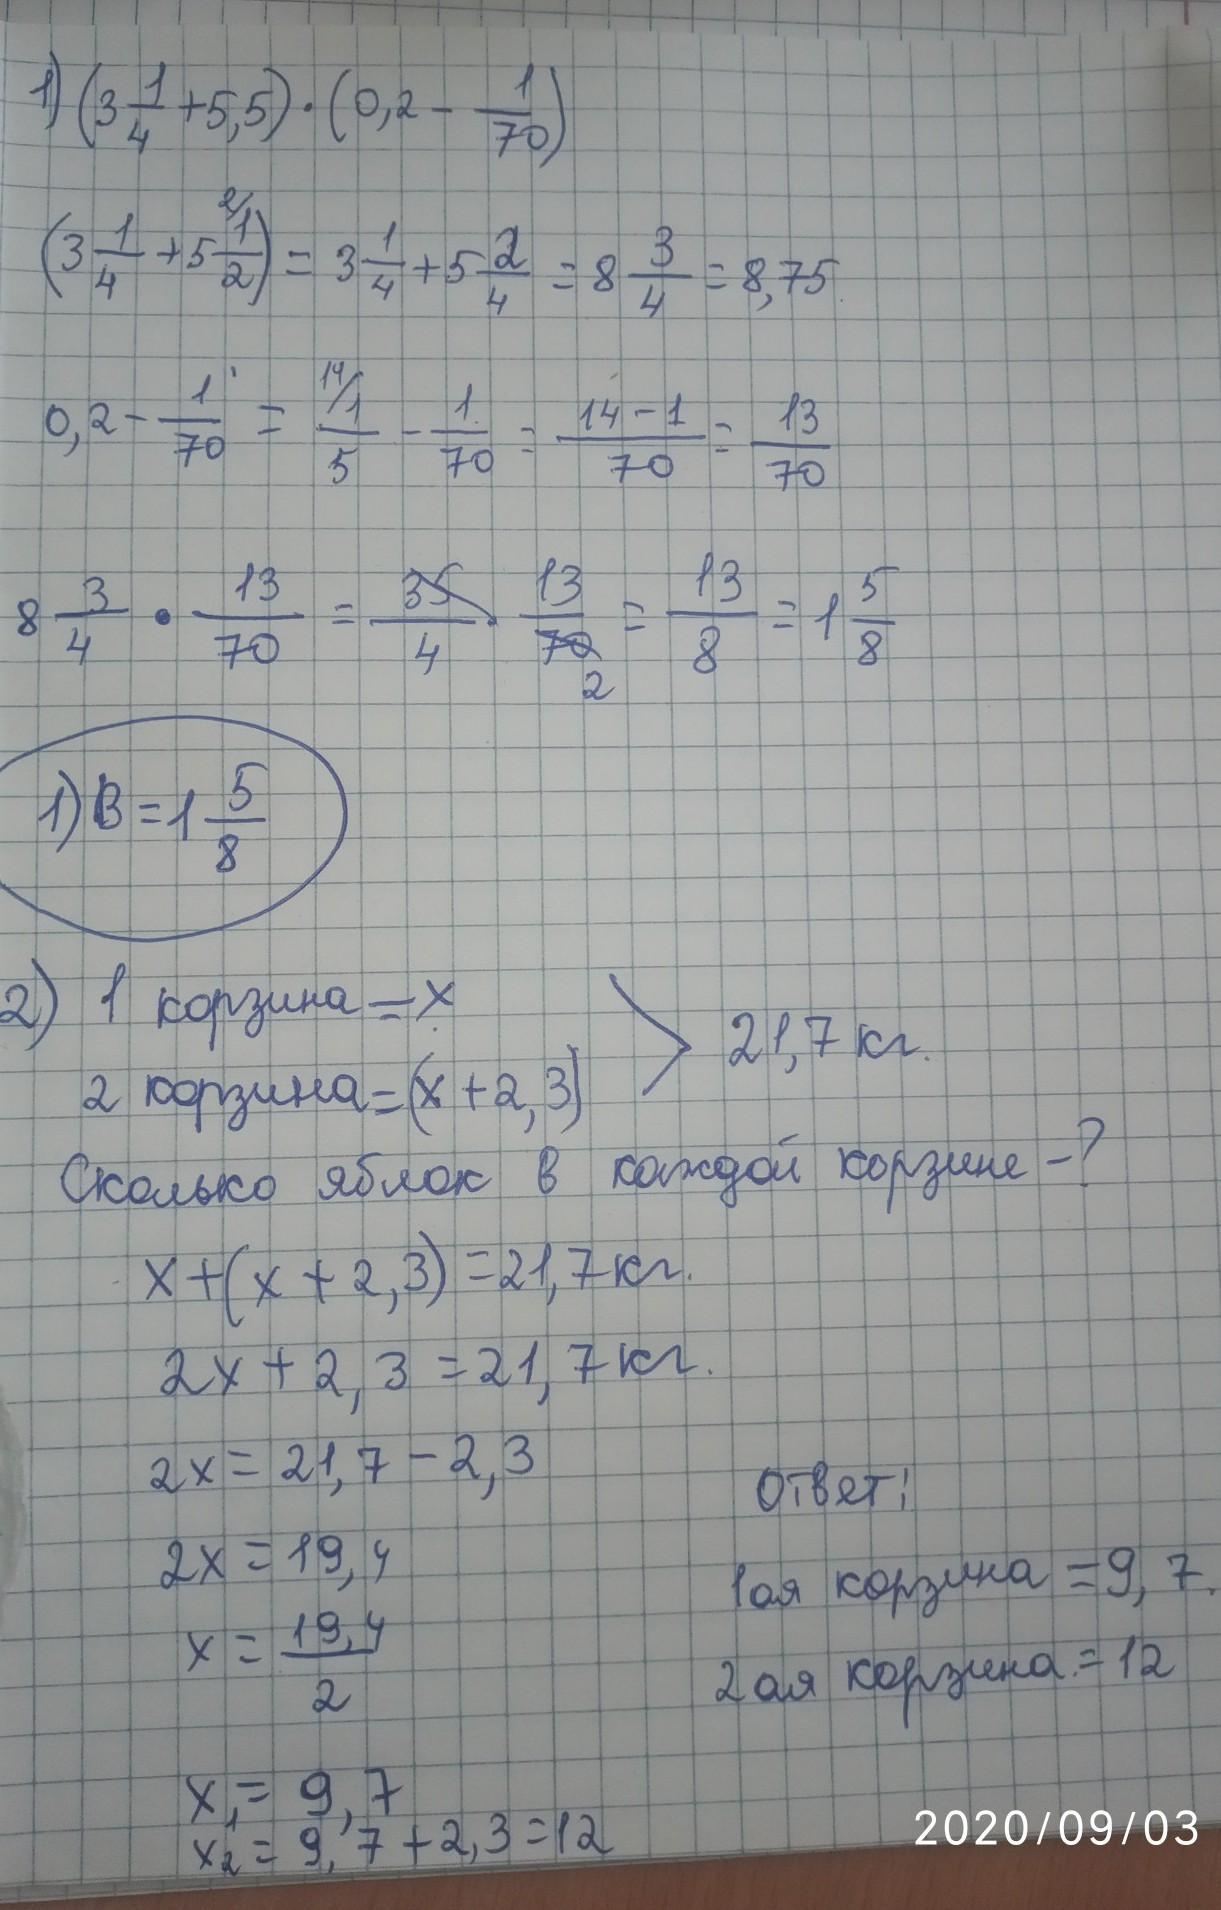 1) (3 1/4 + 5,5) · (0,2 - 1/70)
(3 1/4 + 5 1/2) = 3 1/4 + 5 2/4 = 8 3/4 = 8,75
0,2 - 1/70 = 14/ 1/5 - 1/70 = 14-1/70 = 13/70
8 3/4 · 13/70 = 35/4 · 13/70 2 = 13/8 = 1 5/8
1) В = 1 5/8
2) 1 корзина = x
2 корзина = (x + 2,3)
21,7 кг.
Сколько яблок в каждой корзине - ?
x + (x + 2,3) = 21,7 кг.
2x + 2,3 = 21,7 кг.
2x = 21,7 - 2,3
2x = 19,4
x = 19,4/2
x₁ = 9,7
x₂ = 9,7 + 2,3 = 12
Ответ:
1ая корзина = 9,7.
2ая корзина = 12
2020/09/03